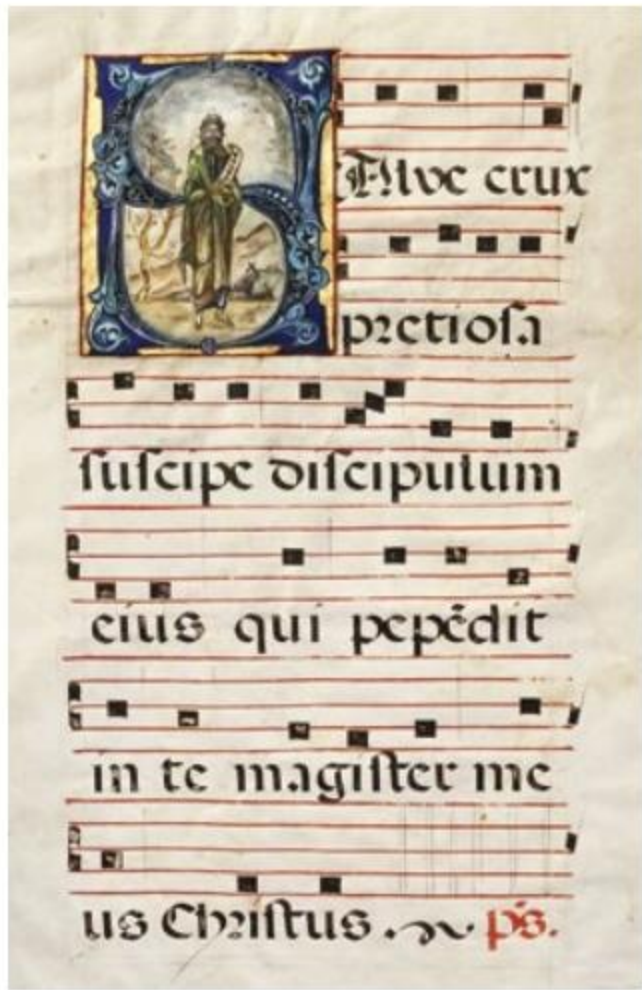 SAlve crux
pretiosa
suscipe discipulum
eius qui pepēdit
in te magister me
us Christus. p̄s.